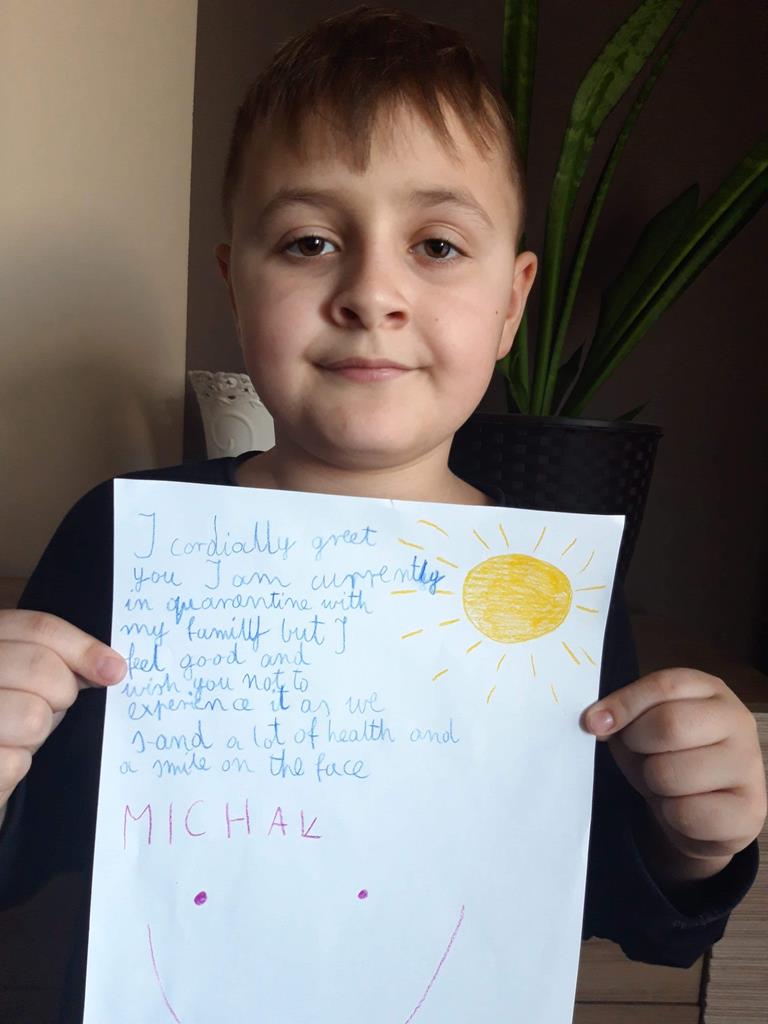 I cordially greet
you I am currently
in quarantine with
my family but I
feel good and
wish you not to
experience it as we
s-and a lot of health and
a smile on the face
MICHAŁ